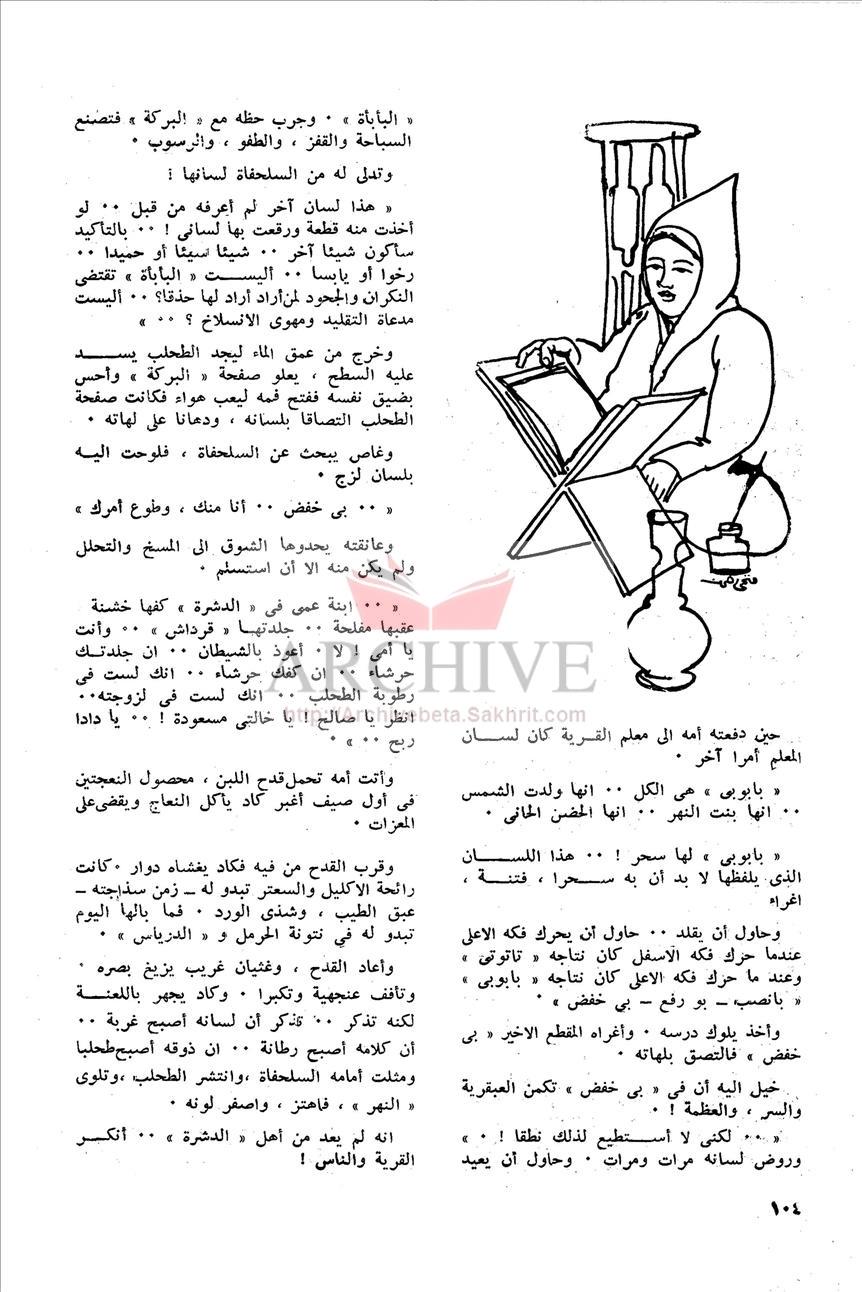 حين دفعته أمه الى معلم القـرية كان لســان
المعلم أمرا آخر ٠
« بابوبى » هى الكل ٠٠ انها ولدت الشمس
٠٠ انها بنت النهر ٠٠ انها الحضن الحانى ٠
« بابوبى » لها سحر ! ٠٠ هذا اللســـان
الذى يلفظها لا بد أن به ســحرا ، فتنــة ،
اغراء
وحاول أن يقلد ٠٠ حاول أن يحرك فكه الاعلى
عندما حرك فكه الاسفل كان نتاجه « تاتوتى »
وعند ما حرك فكه الاعلى كان نتاجه « بابوبى »
« بانصب ـ بو رفع ـ بي خفض » ٠
وأخذ يلوك درسه ٠ وأغراه المقطع الاخير « بى
خفض » فالتصق بلهاته ٠
خيل اليه أن فى « بى خفض » تكمن العبقرية
والسر ، والعظمة ! ٠
« ٠٠ لكنى لا أســتطيع لذلك نطقا ! ٠ »
وروض لسانه مرات ومرات ٠ وحاول أن يعيد
« البأبأة » ٠ وجرب حظه مع « البركة » فتصنع
السباحة والقفز ، والطفو ، والرسوب ٠
وتدلى له من السلحفاة لسانها !
« هذا لسان آخر لم أعرفه من قبل ٠٠ لو
أخذت منه قطعة ورقعت بها لسانى ! ٠٠ بالتأكيد
سأكون شيئا آخر ٠٠ شيئا سيئا أو حميدا ٠٠
رخوا أو يابسا ٠٠ أليســت « البأبأة » تقتضى
النكران والجحود لمن أراد أراد لها حذقا؟ ٠٠ أليست
مدعاة التقليد ومهوى الانسلاخ ؟ ٠٠ »
وخرج من عمق الماء ليجد الطحلب يســد
عليه السطح ، يعلو صفحة « البركة » وأحس
بضيق نفسه ففتح فمه ليعب هواء فكانت صفحة
الطحلب التصاقا بلسانه ، ودهانا على لهاته ٠
وغاص يبحث عن السلحفاة ، فلوحت اليــه
بلسان لزج ٠
« ٠٠ بى خفض ٠٠ أنا منك ، وطوع أمرك »
وعانقته يحدوها الشوق الى المسخ والتحلل
ولم يكن منه الا أن استسلم ٠
« ٠٠ ابنة عمى فى « الدشرة » كفها خشنة
عقبها مفلحة ٠٠ جلدتهـا « قرداش » ٠٠ وأنت
يا أمى ! لا ٠ أعوذ بالشيطان ٠٠ ان جلدتـك
حرشاء ٠٠ ان كفك حرشاء ٠٠ انك لست فى
رطوبة الطحلب ٠٠ انك لست فى لزوجته٠٠
انظر يا صالح ! يا خالتى مسعودة ! ٠٠ يا دادا
ربح ٠٠ » ٠
وأتت أمه تحمل قدح اللبن ، محصول النعجتين
فى أول صيف أغبر كاد يأكل النعاج ويقضى على
المعزات ٠
وقرب القدح من فيه فكاد يغشاه دوار ٠ كانت
رائحة الاكليل والسعتر تبدو له ـ زمن سذاجته ـ
عبق الطيب ، وشذى الورد ٠ فما بالها اليوم
تبدو له في نتونة الحرمل و « الدرياس » ٠
وأعاد القدح ، وغثيان غريب يزيغ بصره ٠
وتأفف عنجهية وتكبرا ٠ وكاد يجهر باللعنــة
لكنه تذكر ٠٠ تذكر أن لسانه أصبح غربة ٠٠
أن كلامه أصبح رطانة ٠٠ ان ذوقه أصبح طحلبا
ومثلت أمامه السلحفاة ،وانتشر الطحلب ،وتلوى
« النهر » ، فاهتز ، واصفر لونه ٠
انه لم يعد من أهل « الدشرة » ٠٠ أنكــر
القرية والناس !
ARCHIVE
http://Archivebeta.Sakhrit.com
١٠٤